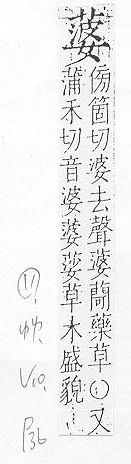 蔢
傍箇切婆去聲蔢藥草○又
蒲禾切音婆蔢草木盛貌
艸
V10